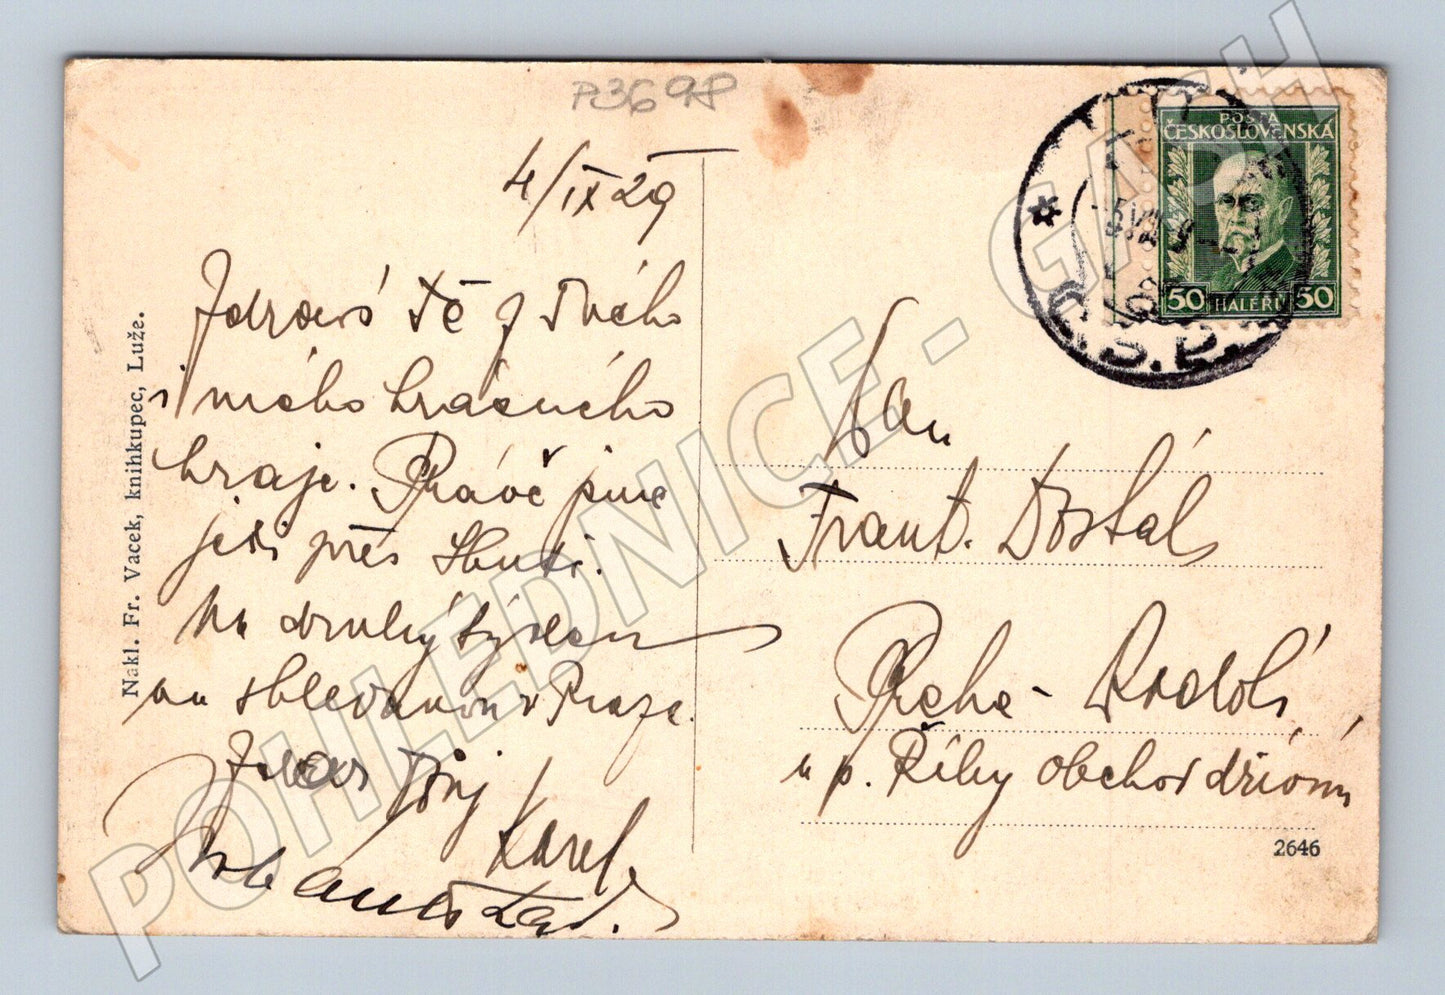 P3698
4/IX 29
Zdravíš Tě z Tvého
i mého krásného
kraje. Právě jsme
jeli přes
Na druhý týden
na shledanou v Praze.
Zdar Tvůj
Karel.
Nakl. Fr. Vacek, knihkupec, Luže.
POŠTA
ČESKOSLOVENSKÁ
50 HALÉŘŮ 50
Č.S.P.
Pan
Frant. Dostál
Praha - Podolí
u p. Říhy obchod
2646
POHLEDNICE - GACH